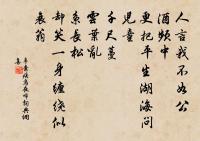 人言我不如公
酒頻中
更把平生湖海問
兒童
千尺蔓
雲葉亂
系長松
却笑一身纏繞似
衰翁
辛棄疾烏夜啼詩典網
集